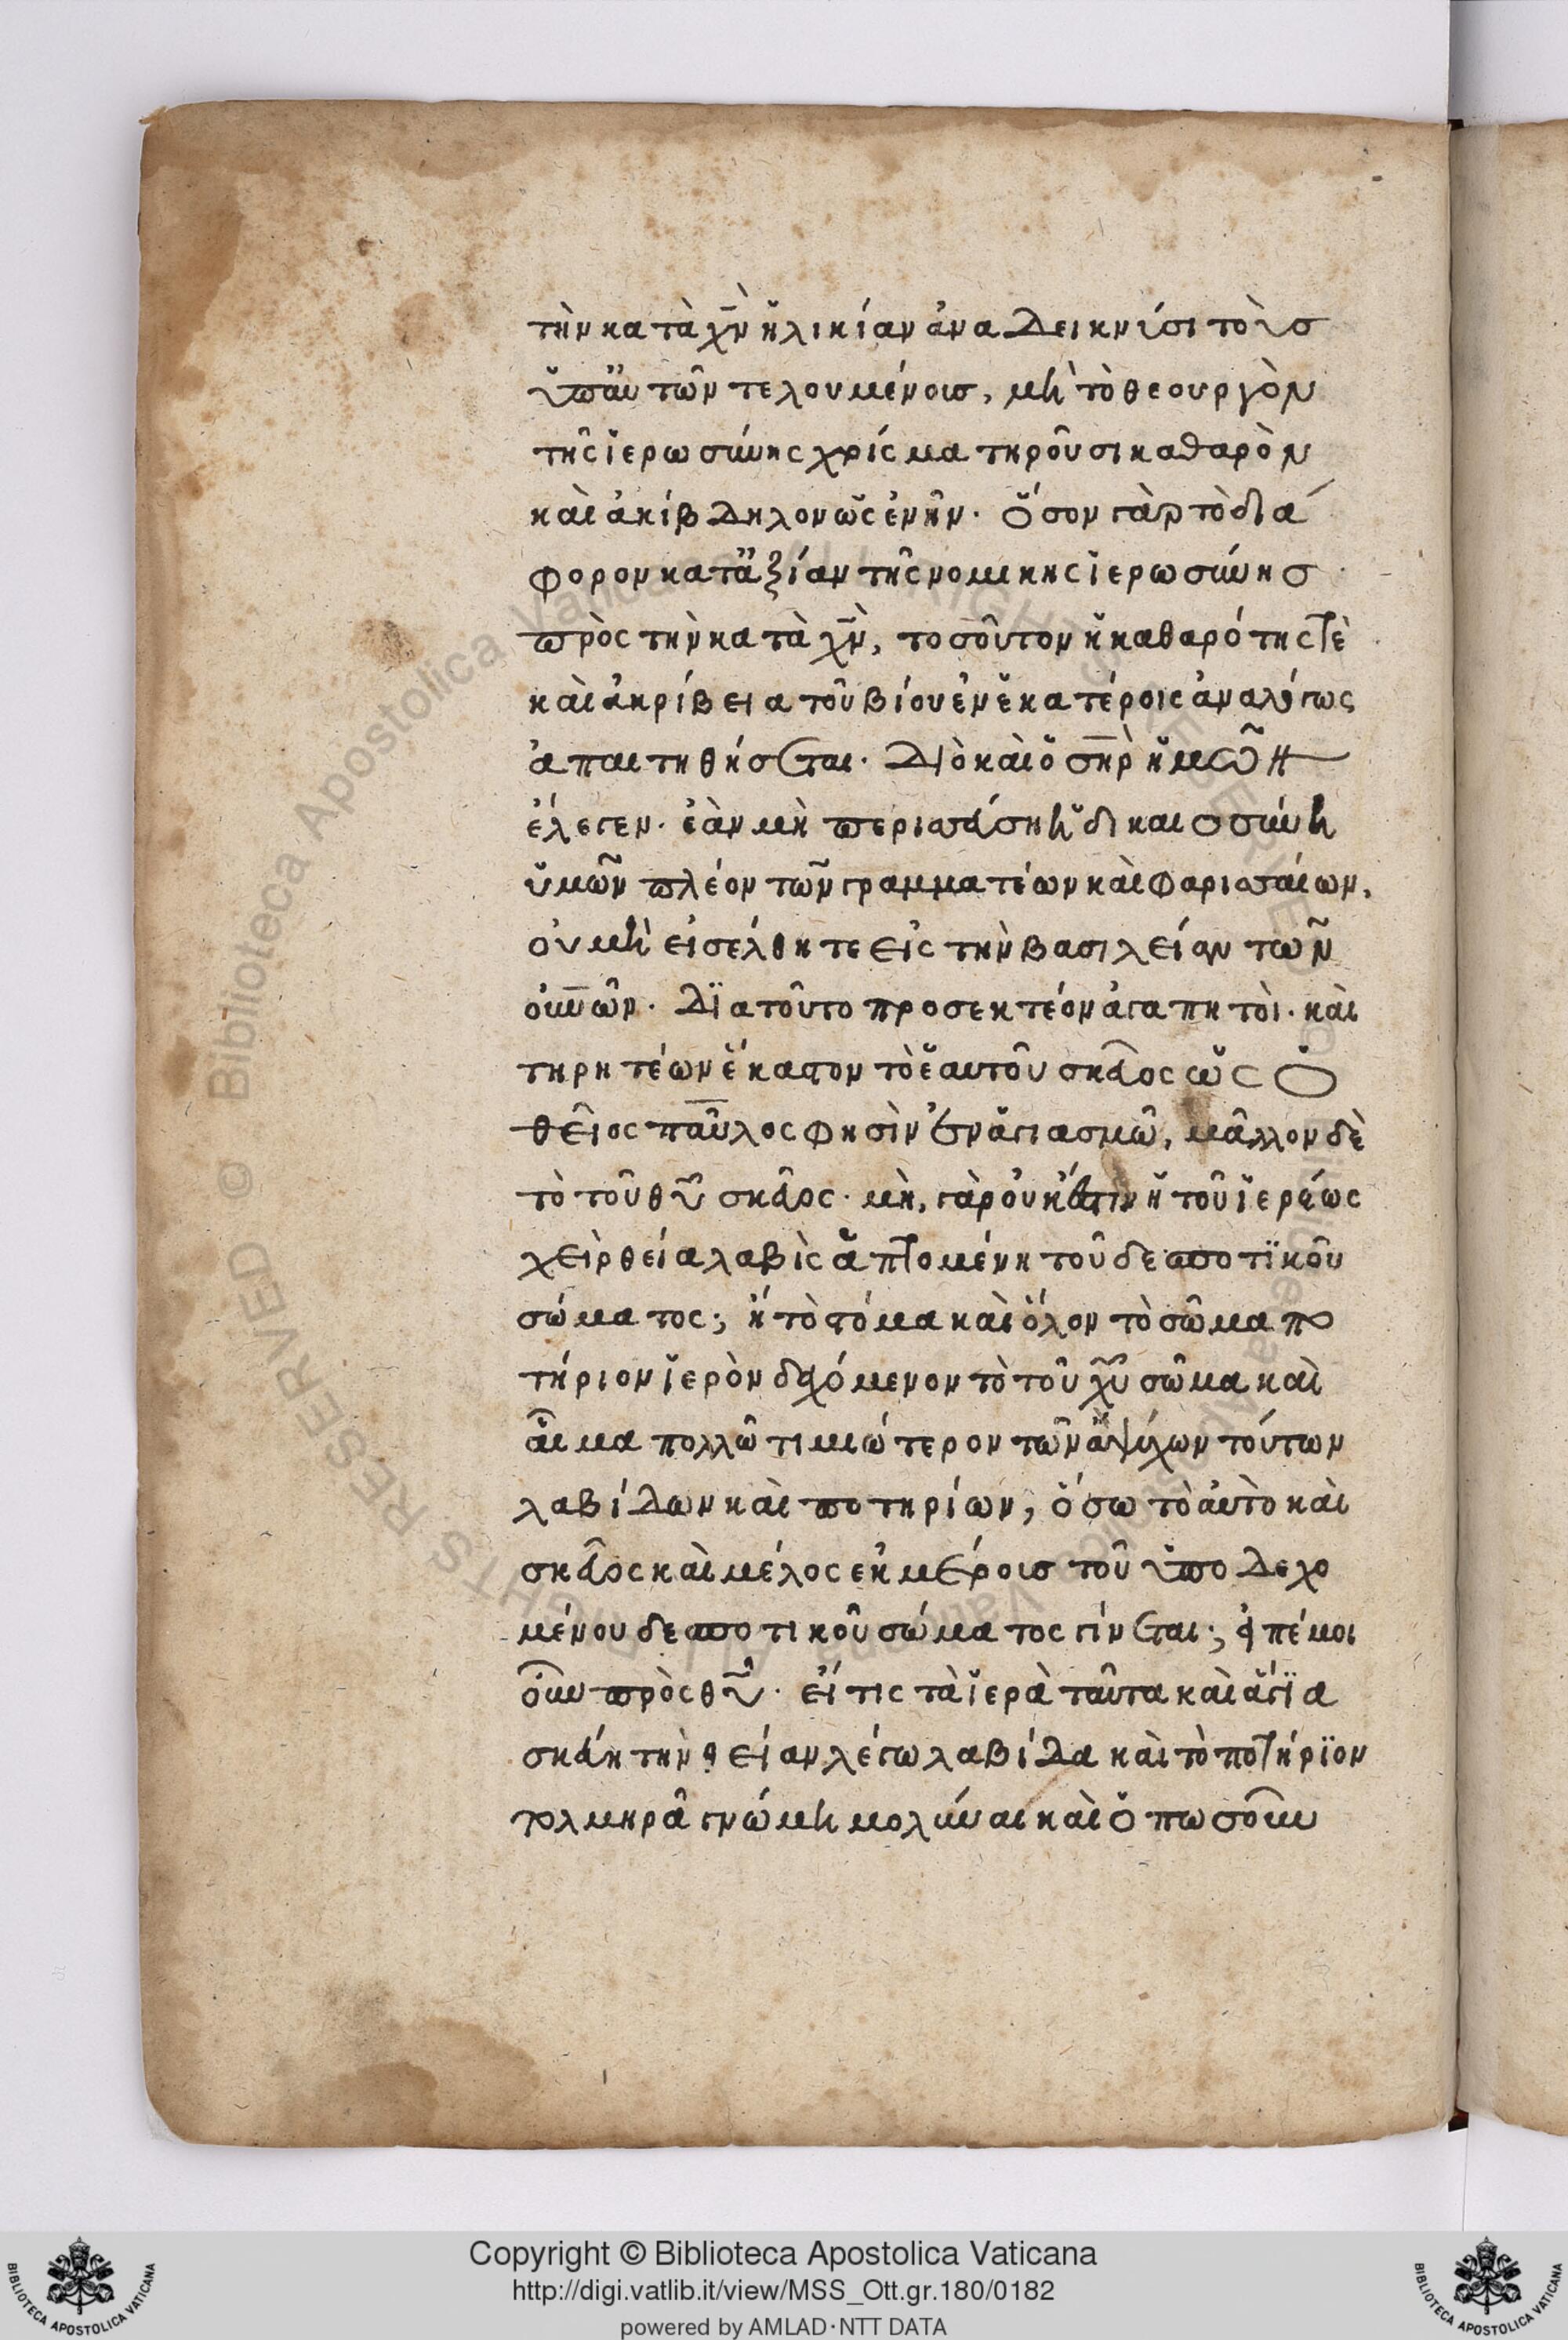 τὴν κατὰ χ̅ν̅ ἡλικίαν ἀναδεικνύσι τοῖσ
ὑπ' αὐτῶν τελουμένοισ, μὴ τὸ θεουργὸν
τῆς ἱερωσύνης χρίσμα τηροῦσι καθαρὸν
καὶ ἀκίβδηλον ὡς ἐνῆν· ὅσον γὰρ τὸ διά
φορον κατ' ἀξίαν τῆς νομικης ἱερωσύνησ
πρὸς τὴν κατὰ χ̅ν̅, τοσοῦτον ἡ καθαρότης τὲ
καὶ ἀκρίβεια τοῦ βίου ἐν ἑκατέροις ἀναλόγως
ἀπαιτηθήσεται· Διὸ καὶ ὁ σ̅η̅ρ̅ ἡμῶν
ἔλεγεν· ἐὰν μὴ περισσεύση ἡ δικαιοσύνη
ὑμῶν πλέον τῶν γραμματέων καὶ φαρισαίων,
οὐ μὴ εἰσέλθητε εἰς τὴν βασιλείαν τῶν
οὐνῶν· Διατοῦτο προσεκτέον ἀγαπητοὶ· καὶ
τηρητέων ἕκαστον τὸ ἑαυτοῦ σκεῦος ὡς ὁ
θεῖος παῦλος φησὶν ἐν ἁγιασμῶ, μᾶλλον δὲ
τὸ τοῦ θ̅υ̅ σκεῦος· μὴ, γὰρ οὐκ ἔστιν ἡ τοῦ ἱερέως
χεὶρ θεία λαβὶς ἁπτομένη τοῦ δεσποτϊκοῦ
σώματος; ἢ τὸ στόμα καὶ ὅλον τὸ σῶμα πο
τήριον ἱερὸν δεχόμενον τὸ τοῦ χ̅υ̅ σῶμα καὶ
αἷμα πολλῶ τιμιώτερον τῶν ἀψύχων τούτων
λαβίδων καὶ ποτηρίων, ὅσω τὸ αὐτὸ καὶ
σκεῦος καὶ μέλος ἐκ μέροισ τοῦ ὑποδεχο
μένου δεσποτικοῦ σώματος γίνεται; εἰπέ μοι
οὖν πρὸς θ̅υ̅· εἴ τις τὰ ἱερὰ ταῦτα καὶ ἅγϊα
σκεύη τὴν θείαν λέγω λαβίδα καὶ τὸ ποτήρϊον
τολμηρᾶ γνώμη μολύναι καὶ ὁπωσοῦν
Copyright © Biblioteca Apostolica Vaticana
http://digi.vatlib.it/view/MSS_Ott.gr.180/0182
powered by AMLAD·NTT DATA
BIBLIOTECA APOSTOLICA VATICANA
BIBLIOTECA APOSTOLICA VATICANA